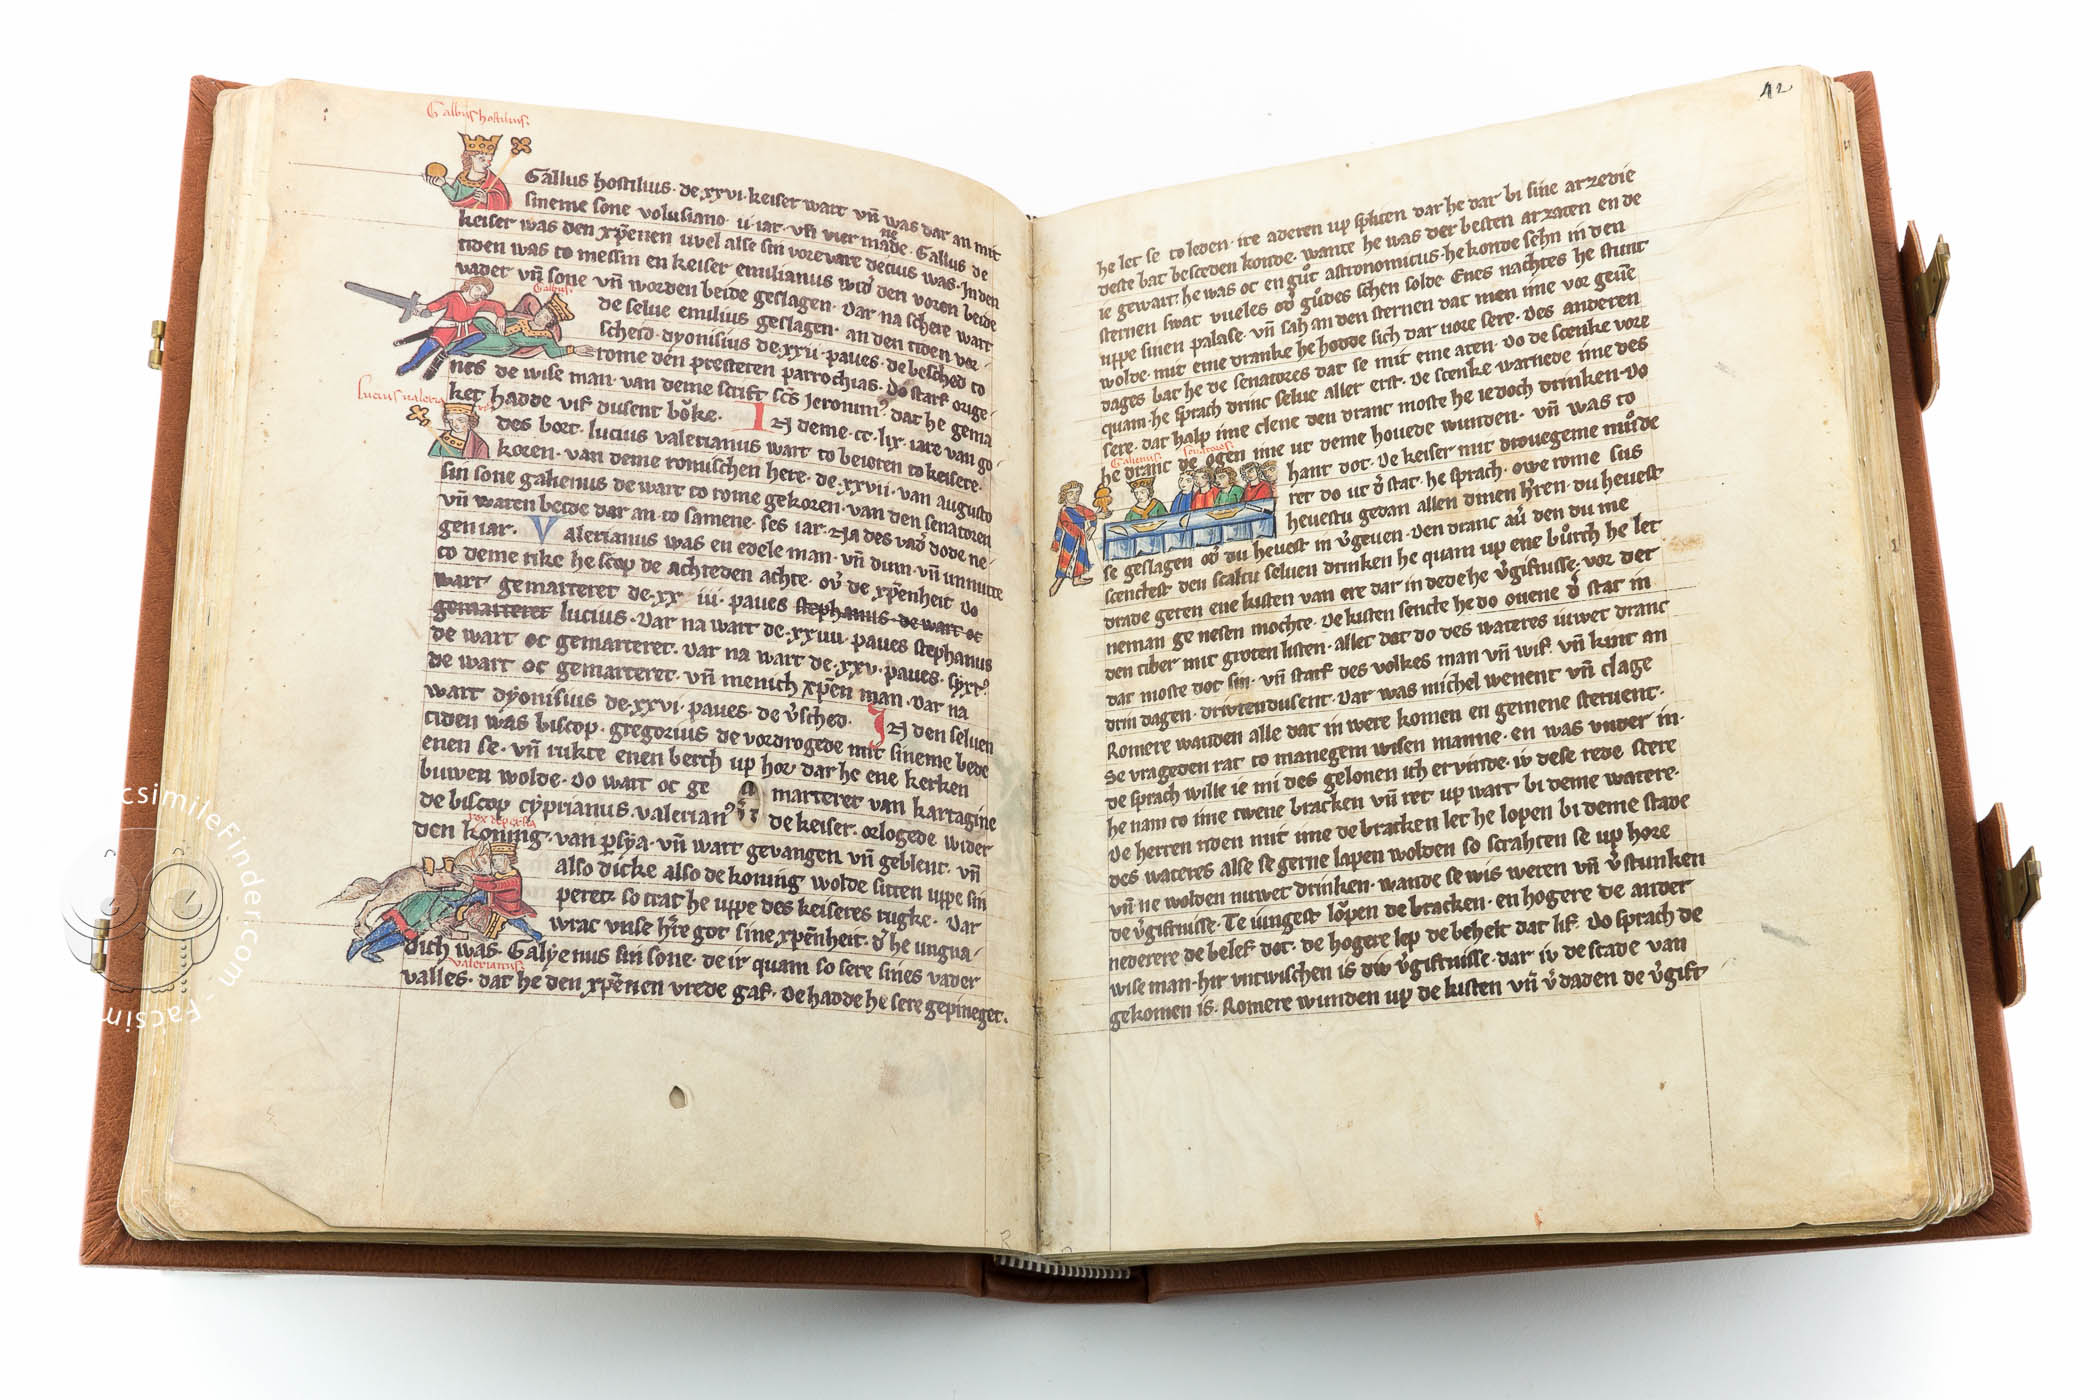 Gallus hostilius.
Gallus hostilius · de·xxvi· keiser wart vn̄ was dar an mit
sineme sone volusiano · ii·iar· vn̄ vier made · Gallus de
ne
keiser was den xp̄enen uvel alse sin vorevare decius was · In den
tiden was to messin en keiser emilianus wid᷑ den voren beide
vader vn̄ sone vn̄ worden beide geslagen · Dar na schere wart
Gallus·
de selue emilius geslagen · an den tiden vor-
scheid · dyonisius de·xxii· paues · de besched to
rome den presteren parrochias · Do starf orige-
nes de wise man · van deme scrift sc̄s Jeronim᷒ dat he gema
ket hadde vif dusent bůke · IN deme ·cc·lix· iare van go-
lucius valeria
des bort · lucius valerianus wart to beioren to keisere·
koren · van deme romischen here · de·xxvii· van augusto
sin sone galienus de wart to rome gekoren · van den senatoren
vn̄ waren beide dar an · to samene · ses iar · Na des vad᷑ dode ne-
gen iar · Valerianus was en edele man · vn̄ dum · vn̄ unnutte
to deme rike he scop de achteden achte · ov᷑ de xp̄enheit Do
wart gemarteret de·xx iii· paues stephanus · de wart oc
gemarteret lucius · Dar na wart de·xxiiii· paues stephanus
de wart oc gemarteret · Dar na wart de·xxv· paues · syxt᷒
de wart oc gemarteret · vn̄ menich xp̄en man · Dar na
wart dyonisius de·xxvi· paues · de v᷑sched · IN den seluen
tiden was biscop · gregorius de vordrogede mit sineme bede
enen se · vn̄ rukte enen berch up hor dar he ene kerken
buwen wolde · Do wart oc ge marteret van kartagine
de biscop cẏprianus · valerian᷒ de keiser · orlogede wider
rex de persia
den koning · van p̄sẏa · vn̄ wart gevangen vn̄ geblent · vn̄
also dicke also de koning wolde sitten uppe sin
peret · so trat he uppe des keiseres rugke · Dar
wrac vnse h᷑re got sine xp̄enheit · d᷑ he ungna-
dich was · Galẏenus sin sone · de ir quam so sere sines vader
valerianus·
valles · dat he den xp̄enen vrede gaf · De hadde he sere gepineget·
42
he let se to leden · ire aderen up spliten dar he dar bi sine arzedie
deste bat besceden konde · wante he was der besten arzaten en de
ie gewart · he was oc en gůt astronomicus · he konde sehn in den
sternen swat vueles od᷑ gůdes schen solde · Enes nachtes he stunt
uppe sinen palase · vn̄ sah an den sternen dat men ime vor geuē
wolde · mit eme dranke he hodde sich dar uore sere · Des anderen
dages bat he de senatores dat se mit eme aten · Do de scenke vore
quam · he sprach drinc selue aller erst · De scenke warnede ime des
sere · dat halp ime clene den dranc moste he iedoch drinken · Do
he dranc de ogen ime ut deme houede wunden · vn̄ was to
Galienus· senatores·
hant dot · De keiser mit drouegeme můde
ret do ut d᷑ stat · he sprach · owe rome sus
heuestu gedan allen dinen h᷑ren · du heuest
se geslagen od᷑ du heuest in v᷑geuen · Den dranc au᷑ den du me
scenctest den scaltu seluen drinken he quam up ene bůrch he let
drade geten ene kisten van ere dar in dede he v᷑giftnisse · vor der
neman ge nesen mochte · De kisten sencte he do ouene d᷑ stat in
den tiber mit groten listen · allet dat do des wateres iuwet dranc
dar moste dot sin · vn̄ starf des volkes man vn̄ wif · vn̄ kint an
drin dagen · drivtendusent · Dar was michel wenent vn̄ clage
Romere wanden alle dat in were komen en gemene steruent·
Se vrageden rat to manegem wisen manne · en was vnder in·
de sprach wilte ie mi des gelonen ich ervinde · iv dese rede stere
he nam to ime twene bracken vn̄ ret up wart bi deme watere·
De herren riden mit ime de bracken let he lopen bi deme stade
des wateres alse se gerne lapen wolden so scrahten se up hore
vn̄ ne wolden nuwet drinken · wande se wis weren vn̄ v᷑stunken
de v᷑giftnisse · Te iungest lǒpen de bracken · en hogere de ander
nederere de belef dot · de hogere lep de behelt dat lif · Do sprach de
wise man · hir vntwischen is div v᷑giftnisse · dar iv de scade van
gekomen is · Romere wunden up de kisten vn̄ v᷑ daden de v᷑gift
FacsimileFinder.com